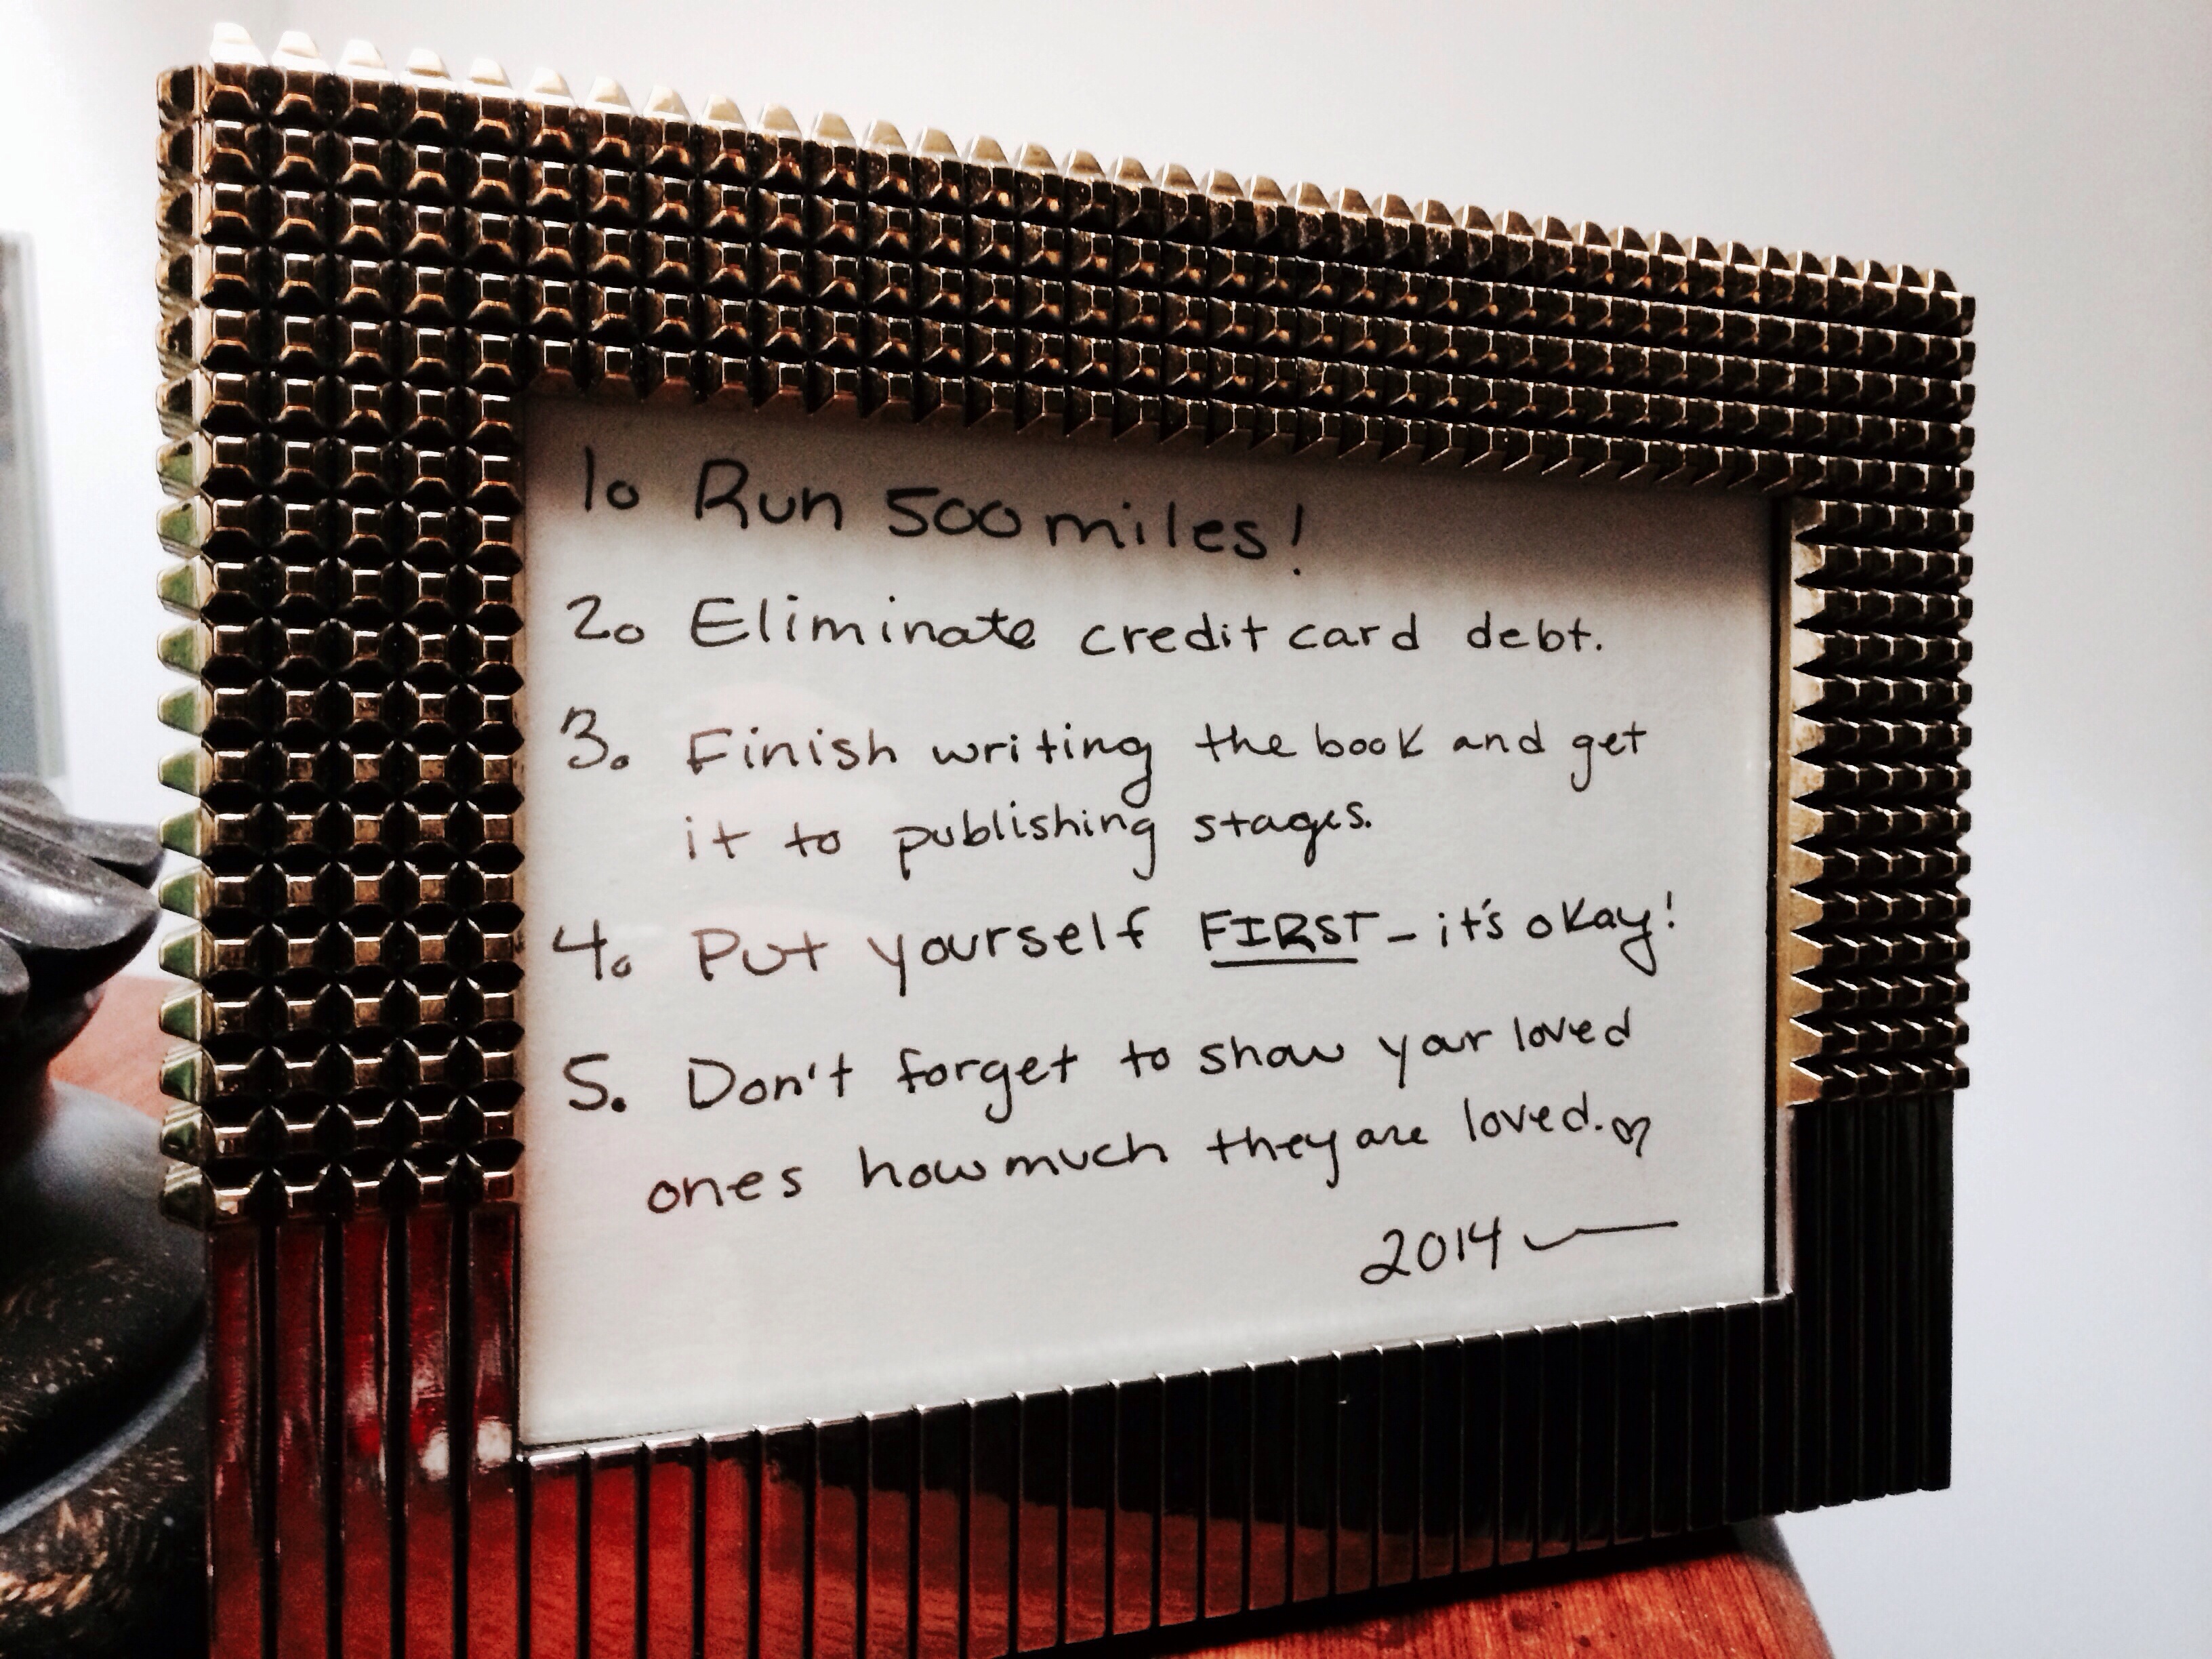 1. Run 500 miles!
2. Eliminate credit card debt.
3. Finish writing the book and get
it to publishing stages.
4. Put yourself FIRST - it's okay!
5. Don't forget to show your loved
ones how much they are loved. ♡
2014